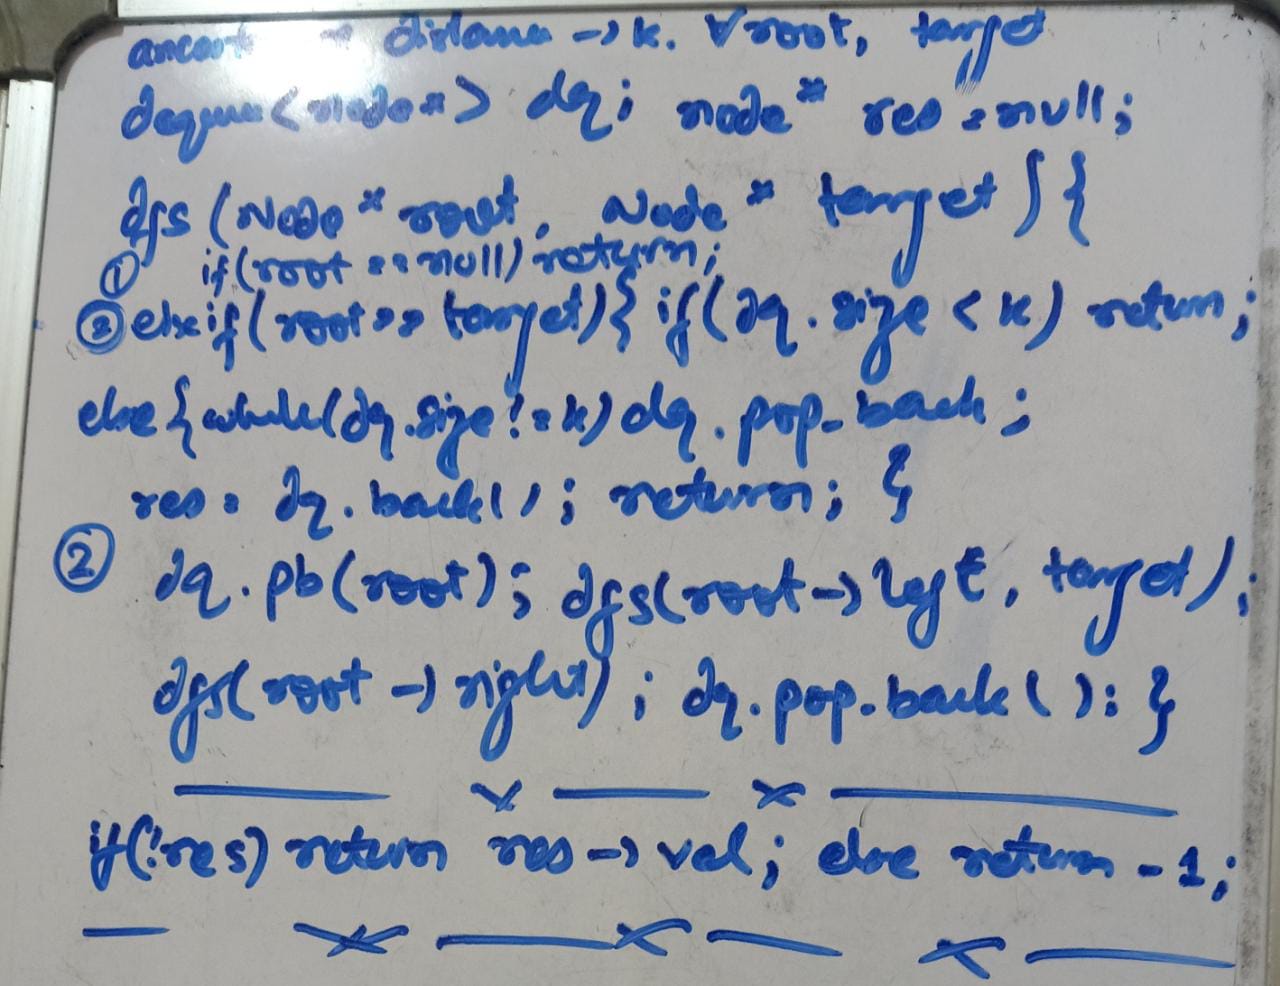 distance -> k. ∀ root, target
deque<node*> dq; node* res = null;
dfs (Node* root, Node* target) {
① if(root == null) return;
② else if(root == target){ if(dq.size < k) return;
else { while(dq.size != k) dq.pop-back;
res = dq.back(); return; }
② dq.pb(root); dfs(root -> left, target);
dfs(root -> right); dq.pop.back(); }
if(!res) return res -> val; else return -1;